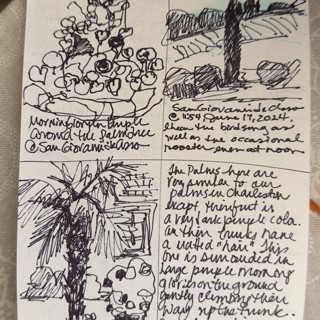 Morning Glories purple
around the Palm tree
@ San Giovanni
San Giovanni
@ 1:54 June 17, 2024.
hear the birdsong as
well as the occasional
rooster even at noon
The Palms here are
very similar to our
Palms in Charleston
except their fruit is
a very dark purple color.
in their trunks have
a "hair" This
one is surrounded in
large purple morning
glories on the ground
gently climbing their
way up the trunk.